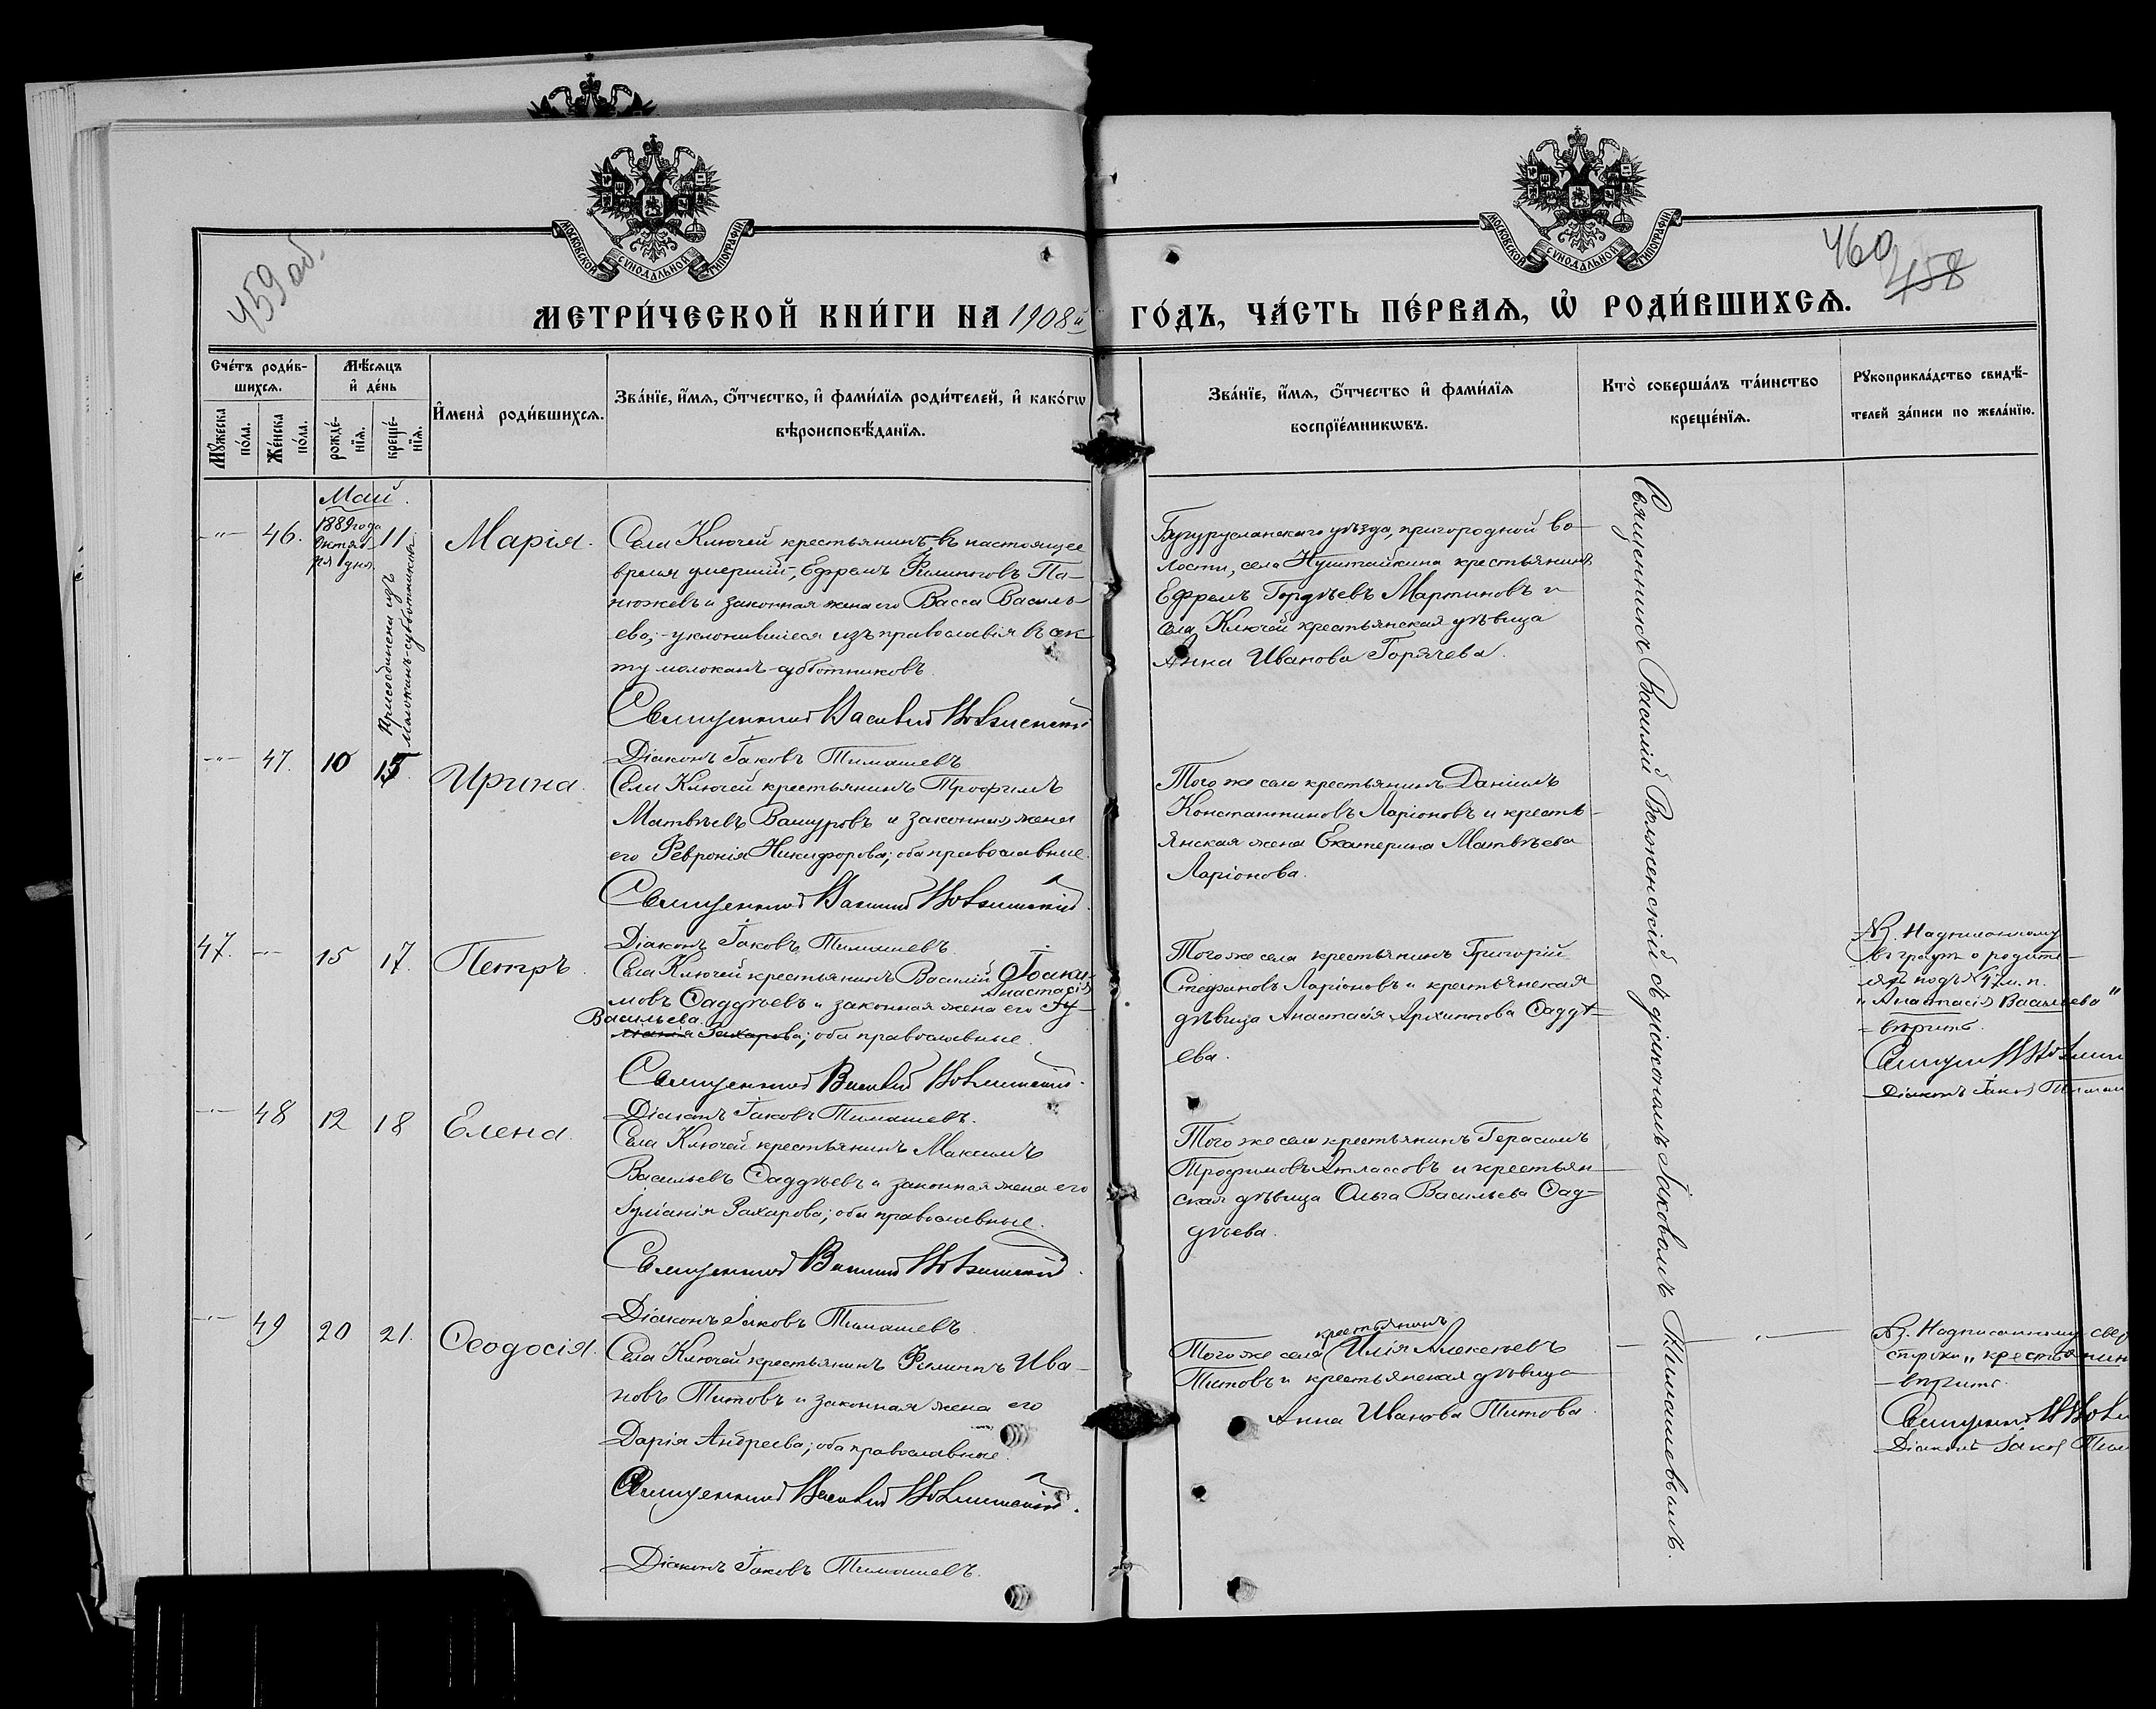 459 об.
МОСКОВСКОЙ СѴНОДАЛЬНОЙ ТИПОГРАФІИ
МОСКОВСКОЙ СѴНОДАЛЬНОЙ ТИПОГРАФІИ
460
458
МЕТРИ́ЧЕСКОЙ КНИ́ГИ НА 1908й ГО́ДЪ, ЧА́СТЬ ПЕ́РВАѦ, Ѡ҆ РОДИ́ВШИХСѦ.
Сче́тъ роди́в-
шихсѧ.
Мꙋ́жеска
по́ла.
Же́нска
по́ла.
Мѣ́сѧцъ
и҆ де́нь
рожде́-
нїѧ.
креще́-
нїѧ.
И҆мена̀ роди́вшихсѧ.
Зва́нїе, и҆́мѧ, ѻ҆́тчество, и҆ фами́лїѧ роди́телей, и҆ како́гѡ
вѣроисповѣ́данїѧ.
Зва́нїе, и҆́мѧ, ѻ҆́тчество и҆ фами́лїѧ
воспрїе́мникѡвъ.
Кто̀ соверша́лъ та́инство
креще́нїѧ.
Рꙋкоприкла́дство свидѣ́-
телей за́писи по жела́нїю.
Май.
-"- 46. 1889 года
Октяб-
ря дня.
11.
Присоединена изъ
молоканъ-субботниковъ
Марія.
Села Ключей крестьянинъ, въ настоящее
время умершій, Ефремъ Филипповъ Па-
нюжевъ и законная жена его Васса Василь-
ева; уклонившіеся изъ православія въ сек-
ту молоканъ-субботниковъ.
Священникъ Василій Волженскій
Діаконъ Іаковъ Тимашевъ
Бугурусланскаго уѣзда, пригородной во-
лости, села Нуштайкина крестьянинъ
Ефремъ Гордѣевъ Мартиновъ и
села Ключей крестьянская дѣвица
Анна Иванова Горячева.
-"- 47. 10 15 Ирина.
Села Ключей крестьянинъ Трофимъ
Матвѣевъ Вашуровъ и законная жена
его Февронія Никифорова; оба православные.
Священникъ Василій Волженскій.
Діаконъ Іаковъ Тимашевъ.
Того же села крестьянинъ Даніилъ
Константиновъ Ларіоновъ и кресть-
янская жена Екатерина Матвѣева
Ларіонова.
47. -"- 15 17. Петръ.
Села Ключей крестьянинъ Василій Іоаки-
Анастасія
мовъ Фаддѣевъ и законная жена его Іу-
Васильева
ліанія Захарова; оба православные.
Священникъ Василій Волженскій.
Діаконъ Іаковъ Тимашевъ.
Того же села крестьянинъ Григорій
Стефановъ Ларіоновъ и крестьянская
дѣвица Анастасія Архиппова Фаддѣ-
ева.
NB. Надписанному
въ графѣ о родите-
ляхъ подъ №47 м. п.
"Анастасія Васильева"
- вѣрить.
Діаконъ Іаков
-"- 48 12 18 Елена.
Села Ключей крестьянинъ Максимъ
Васильевъ Фаддѣевъ и законная жена его
Іуліанія Захарова; оба православные.
Священникъ Василій Волженскій.
Діаконъ Іаковъ Тимашевъ.
Того же села крестьянинъ Герасимъ
Трофимовъ Атлассовъ и крестьян-
ская дѣвица Ольга Васильева Фад-
дѣева.
-"- 49 20 21. Ѳеодосія.
Села Ключей крестьянинъ Филиппъ Ива-
новъ Титовъ и законная жена его
Дарія Андреева; оба православные.
Священникъ Василій Волженскій.
Діаконъ Іаковъ Тимашевъ.
крестьянинъ
Того же села Илія Алексѣевъ
Титовъ и крестьянская дѣвица
Анна Иванова Титова.
NB. Надписанному свер
строки "крестьянин
- вѣрить.
Діаконъ Іаков
Священникъ Василій Волженскій съ діакономъ Іаковомъ Тимашевымъ.